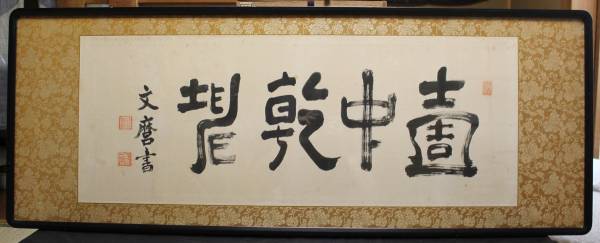 壺中乾坤
文麿書